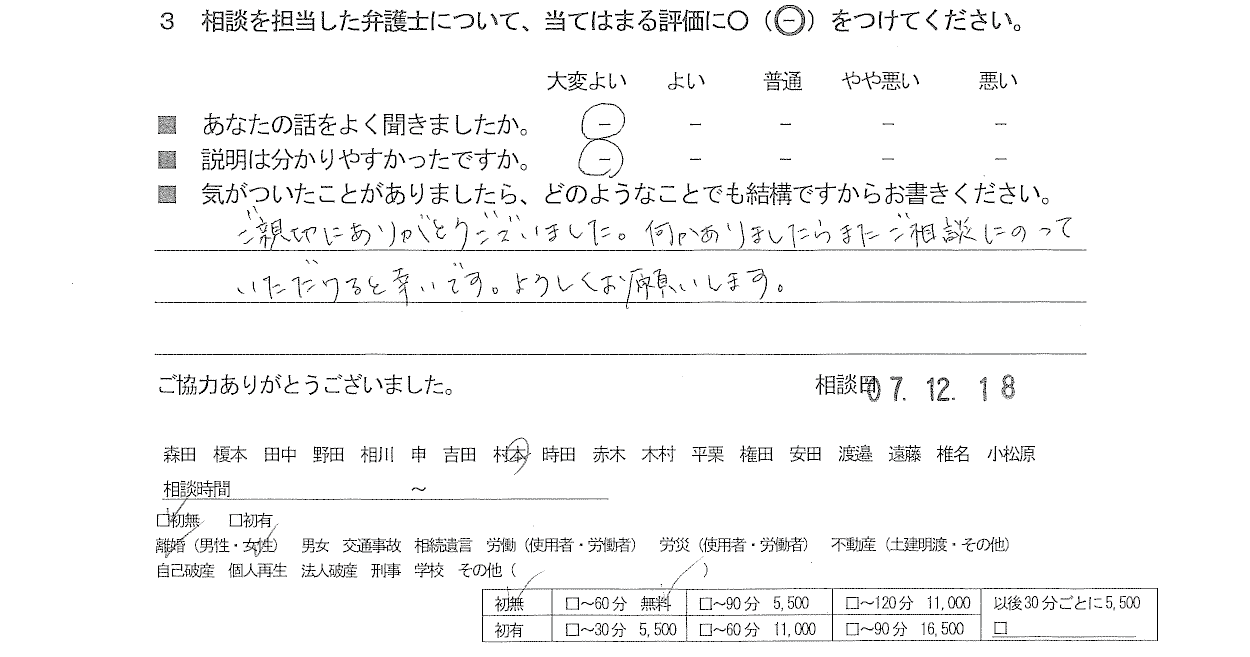 3 相談を担当した弁護士について、当てはまる評価に○（⊖）をつけてください。
大変よい よい 普通 やや悪い 悪い
■ あなたの話をよく聞きましたか。 － － － － －
■ 説明は分かりやすかったですか。 － － － － －
■ 気がついたことがありましたら、どのようなことでも結構ですからお書きください。
ご親切にありがとうございました。何かありましたらまたご相談にのって
いただけると幸いです。よろしくお願いします。
ご協力ありがとうございました。 相談日 07.12.18
森田 榎本 田中 野田 相川 申 吉田 村本 時田 赤木 木村 平栗 権田 安田 渡邉 遠藤 椎名 小松原
相談時間 ～
□初無 □初有
離婚（男性・女性） 男女 交通事故 相続遺言 労働（使用者・労働者） 労災（使用者・労働者） 不動産（土建明渡・その他）
自己破産 個人再生 法人破産 刑事 学校 その他（ ）
初無 □～60分 無料 □～90分 5,500 □～120分 11,000 以後30分ごとに5,500
初有 □～30分 5,500 □～60分 11,000 □～90分 16,500 □